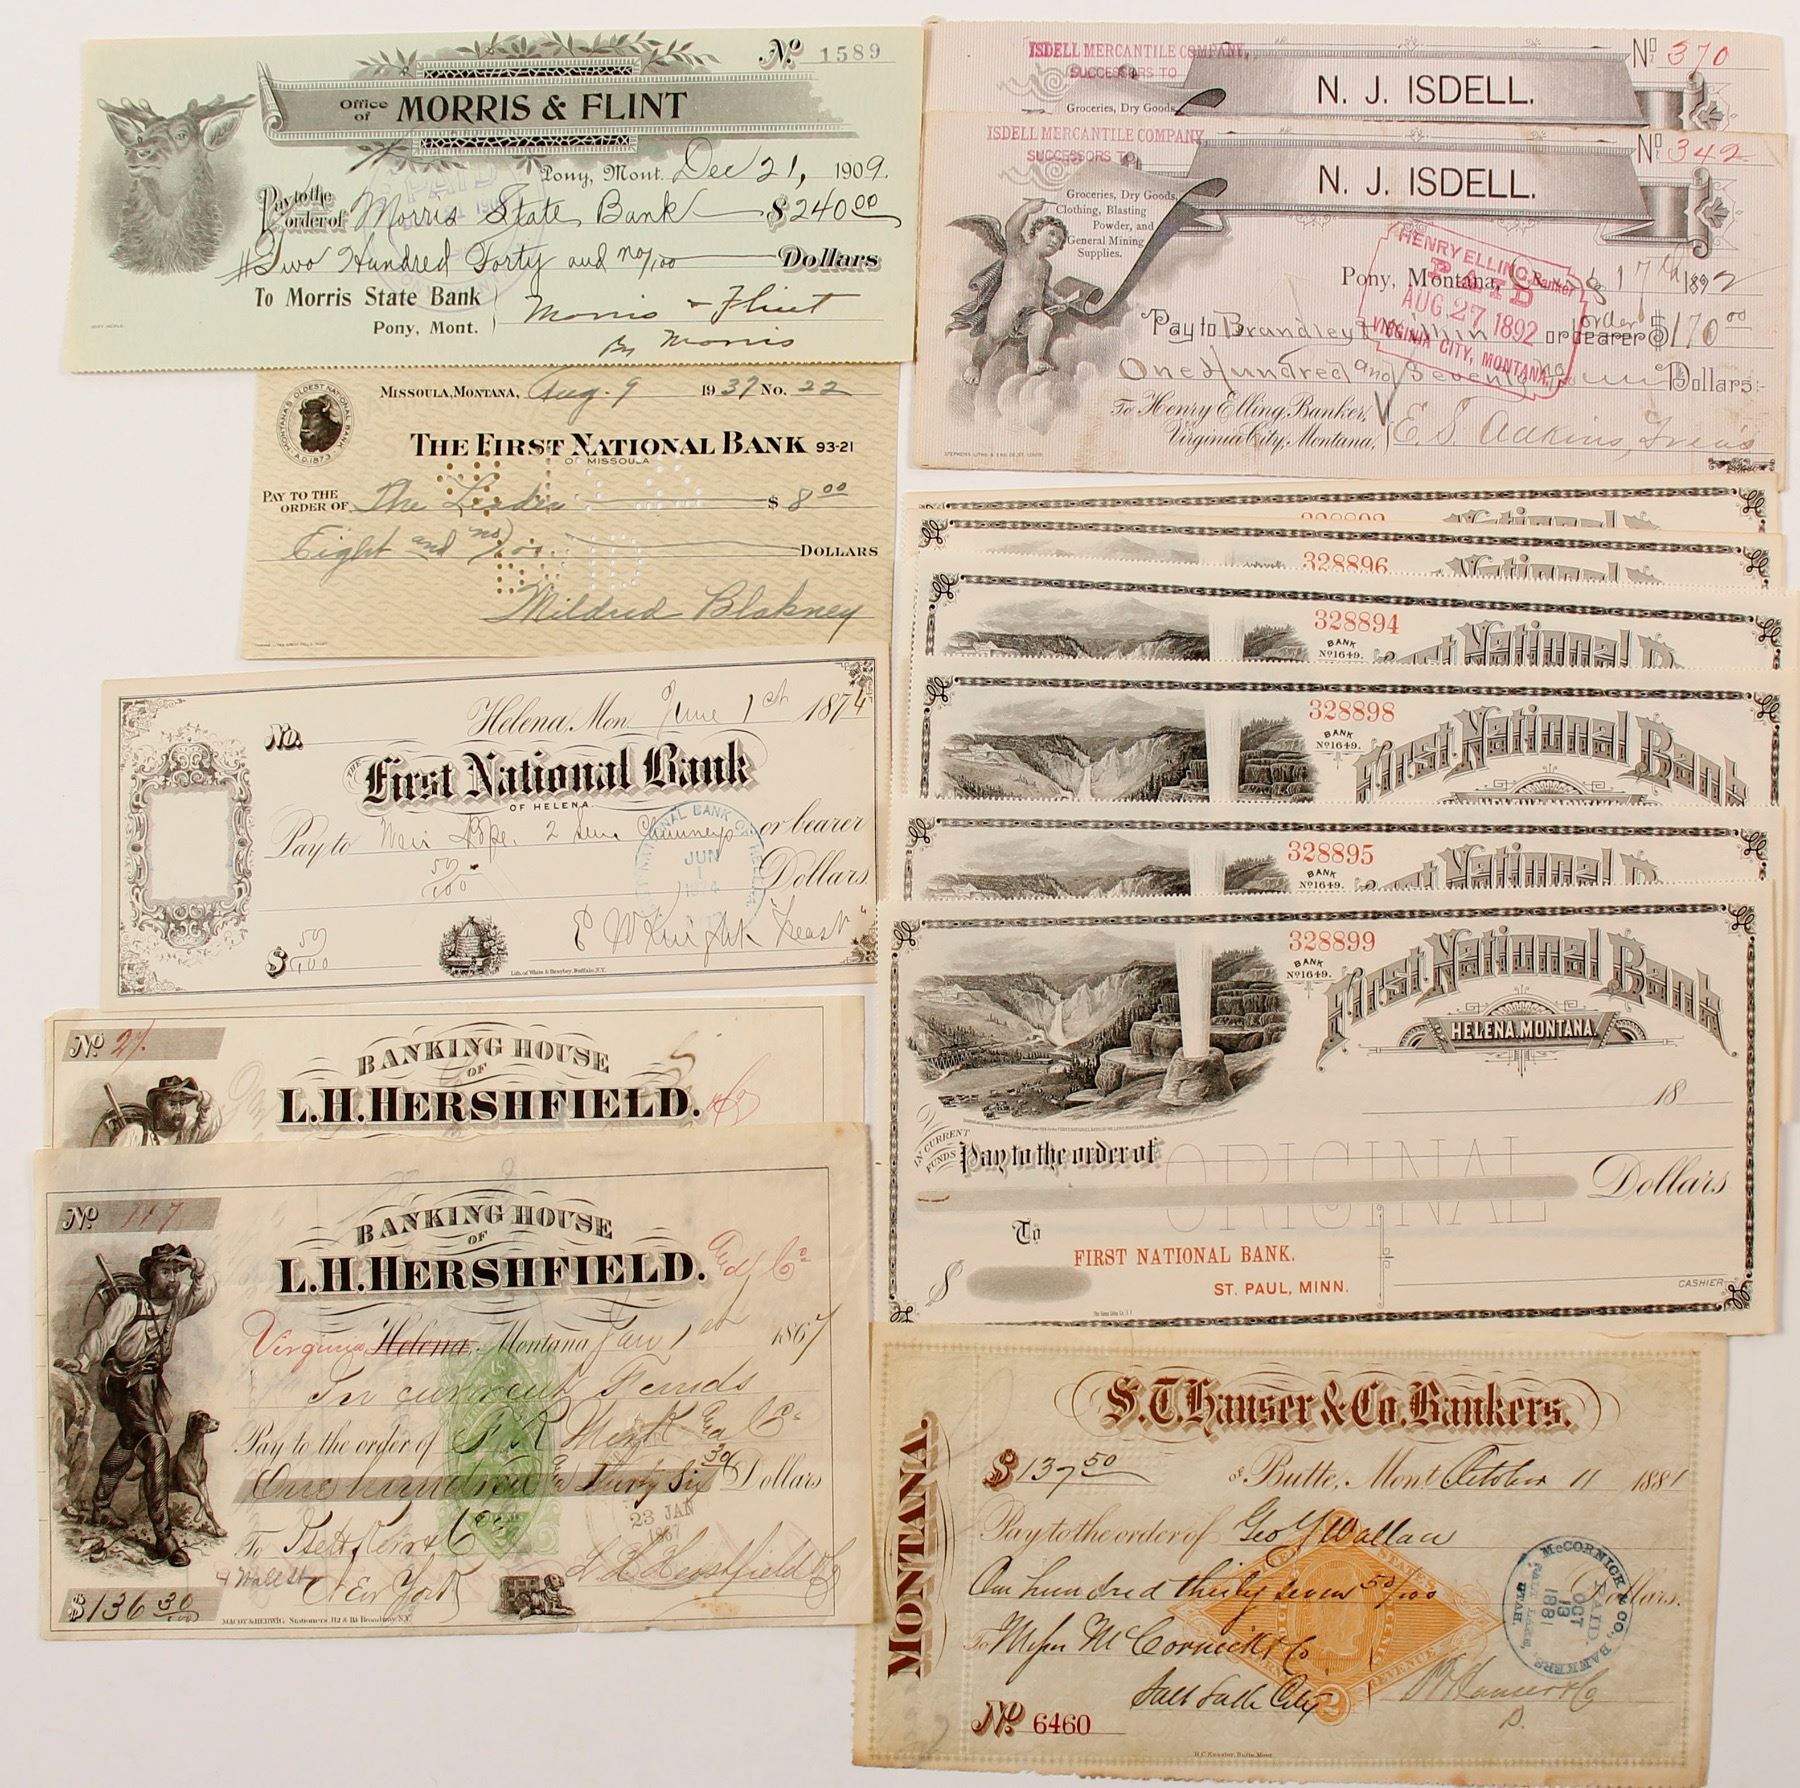 Office of MORRIS & FLINT
No. 1589
Pony, Mont. Dec 21, 1909.
Pay to the order of Morris State Bank $240 00
Two Hundred Forty and no/100 Dollars
PAID
To Morris State Bank
Pony, Mont.
Morris & Flint
By Morris
MONTANA'S OLDEST NATIONAL BANK
A.D. 1873
MISSOULA, MONTANA, Aug. 9 1937 No. 22
THE FIRST NATIONAL BANK 93-21
OF MISSOULA
PAY TO THE ORDER OF The Leader $ 8 00
Eight and no/100 DOLLARS
Mildred Blakney
Helena, Mon. June 1st 1874
No.
THE First National Bank
OF HELENA.
Pay to Weir & Pope. 2 Chimneys or bearer
50/100 Dollars
JUN
1
1874
$ 50/100
E W Knight Treasr
Lith. of White & Brayley, Buffalo, N.Y.
No 27.
BANKING HOUSE
OF
L.H. HERSHFIELD.
No 117
BANKING HOUSE
OF
L.H. HERSHFIELD. and Co
Virginia Helena, Montana Jan 1st 1867
In current Funds
Pay to the order of and Co
One hundred and Thirty Six 30 Dollars
23 JAN
1867
To
4 Wall St New York
L H Hershfield & Co
$136 30/100
MACOY & HERWIG, Stationers 112 & 114 Broadway, N.Y.
ISDELL MERCANTILE COMPANY,
SUCCESSORS TO
N. J. ISDELL.
No 370
Groceries, Dry Goods,
ISDELL MERCANTILE COMPANY,
SUCCESSORS TO
N. J. ISDELL.
No 342
Groceries, Dry Goods,
Clothing, Blasting
Powder, and
General Mining
Supplies.
HENRY ELLING, Banker
PAID
AUG 27 1892
VIRGINIA CITY, MONTANA.
Pony, Montana, 17th 1892
Pay to Brandley or bearer order $170 00
One Hundred and Seventy Dollars
To Henry Elling, Banker,
Virginia City, Montana,
E. S. Adkins, Treas
STEPHENS LITHO & ENG. CO. ST. LOUIS
National
328896
National
328894
BANK
No 1649.
First National B
328898
BANK
No 1649.
First National Bank
HELENA, MONTANA.
328895
BANK
No 1649.
First National B
328899
BANK
No 1649.
First National Bank
HELENA, MONTANA.
18
IN CURRENT FUNDS
Pay to the order of
ORIGINAL
Dollars
ORIGINAL
To
FIRST NATIONAL BANK.
ST. PAUL, MINN.
$
CASHIER
S.T. Hauser & Co. Bankers.
MONTANA.
$137 50 Butte, Mont. October 11 1881
Pay to the order of Geo Y Wallace
One hundred thirty seven 50/100 Dollars.
McCORNICK & CO., BANKERS
PAID.
OCT
13
1881
SALT LAKE,
UTAH.
To Messrs McCornick & Co.
Salt Lake City
Hauser & Co
No 6460
H.C. Kessler, Butte, Mont.